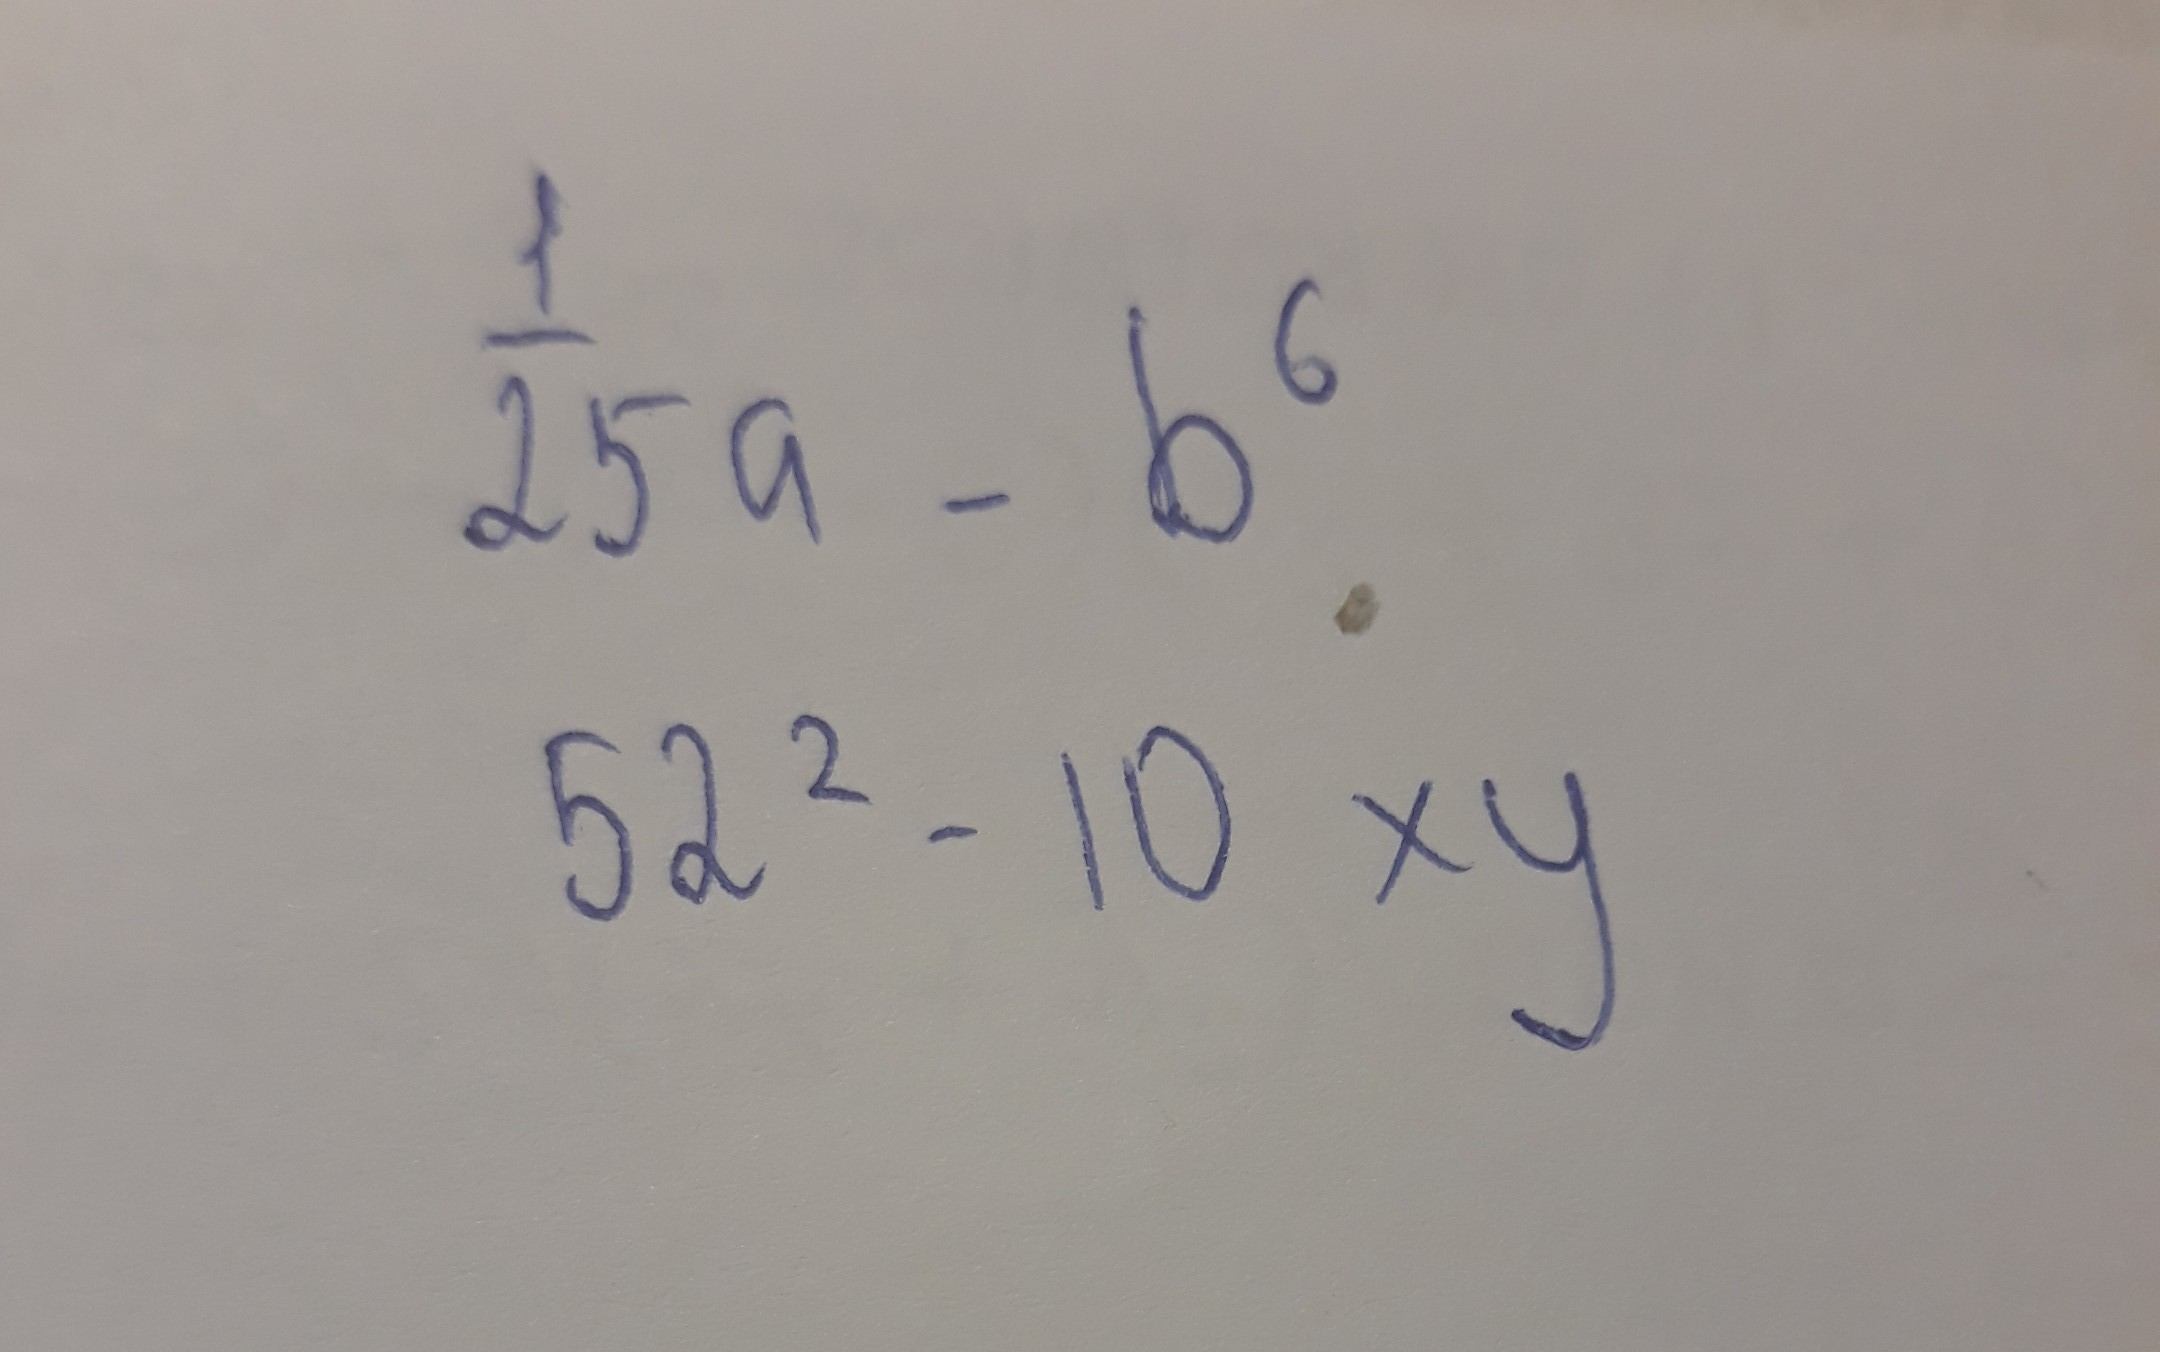 1/25 a - b⁶
52² - 10 xy